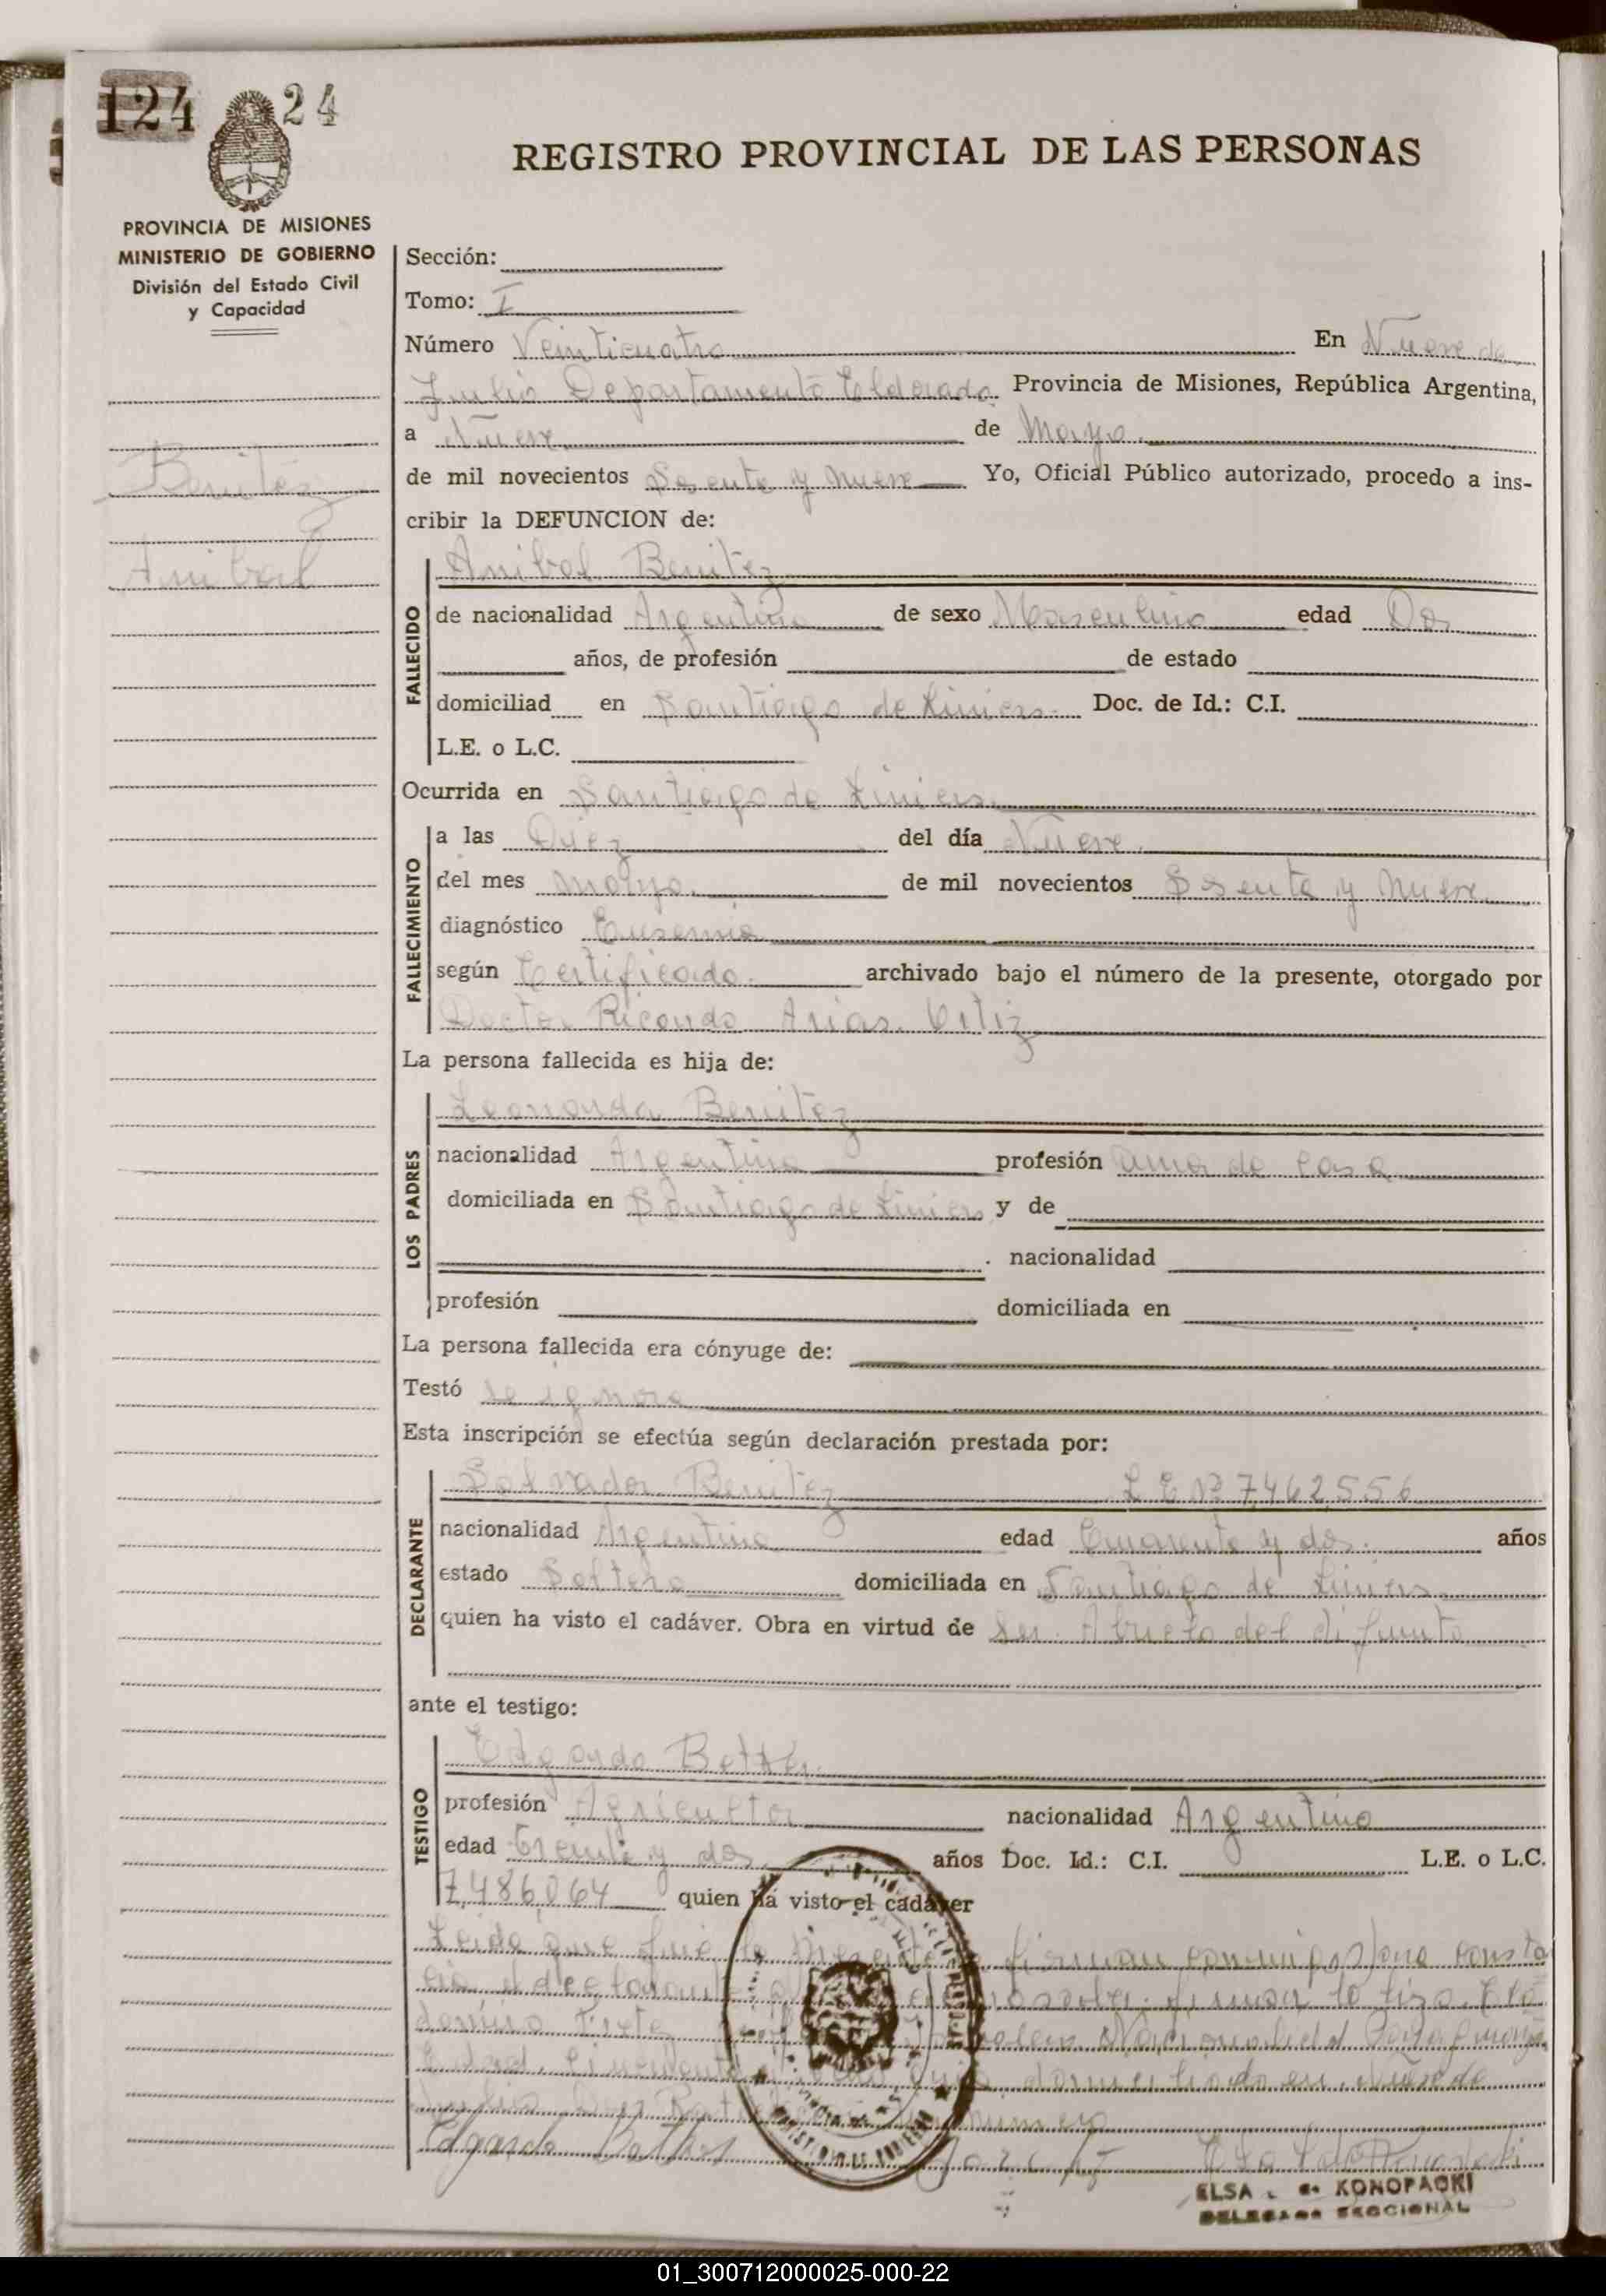 124 24
REGISTRO PROVINCIAL DE LAS PERSONAS
PROVINCIA DE MISIONES
MINISTERIO DE GOBIERNO
División del Estado Civil
y Capacidad
Benitez
Anibal
Sección:
Tomo: I
Número Veinticuatro En Nueve de
Julio Departamento Eldorado Provincia de Misiones, República Argentina,
a Nueve de Mayo
de mil novecientos Sesenta y Nueve Yo, Oficial Público autorizado, procedo a ins-
cribir la DEFUNCION de:
FALLECIDO
Anibal Benitez
de nacionalidad Argentina de sexo Masculino edad Dos
años, de profesión de estado
domiciliad en Santiago de Liniers Doc. de Id.: C.I.
L.E. o L.C.
Ocurrida en Santiago de Liniers
FALLECIMIENTO
a las Diez del día Nueve
del mes Mayo de mil novecientos Sesenta y Nueve
diagnóstico
según Certificado archivado bajo el número de la presente, otorgado por
Doctor Ricardo Arias Ortiz
La persona fallecida es hija de:
LOS PADRES
Benitez
nacionalidad Argentina profesión ama de casa
domiciliada en Santiago de Liniers y de
nacionalidad
profesión domiciliada en
La persona fallecida era cónyuge de:
Testó se ignora
Esta inscripción se efectúa según declaración prestada por:
DECLARANTE
Salvador Benitez L E Nº 7.462.556
nacionalidad Argentino edad Cuarenta y dos años
estado Soltero domiciliada en Santiago de Liniers
quien ha visto el cadáver. Obra en virtud de Ser Abuelo del difunto
ante el testigo:
TESTIGO
Edgardo
profesión Agricultor nacionalidad Argentino
edad Treinta y dos años Doc. Id.: C.I. L.E. o L.C.
7.486.064 quien ha visto el cadáver
Leida que fué la presente firman conmigo
firmar lo
Nacionalidad Paraguaya
Edad domiciliado en Nueve de
Julio
Edgardo
ELSA KONOPACKI
DELEGADA SECCIONAL
01_300712000025-000-22